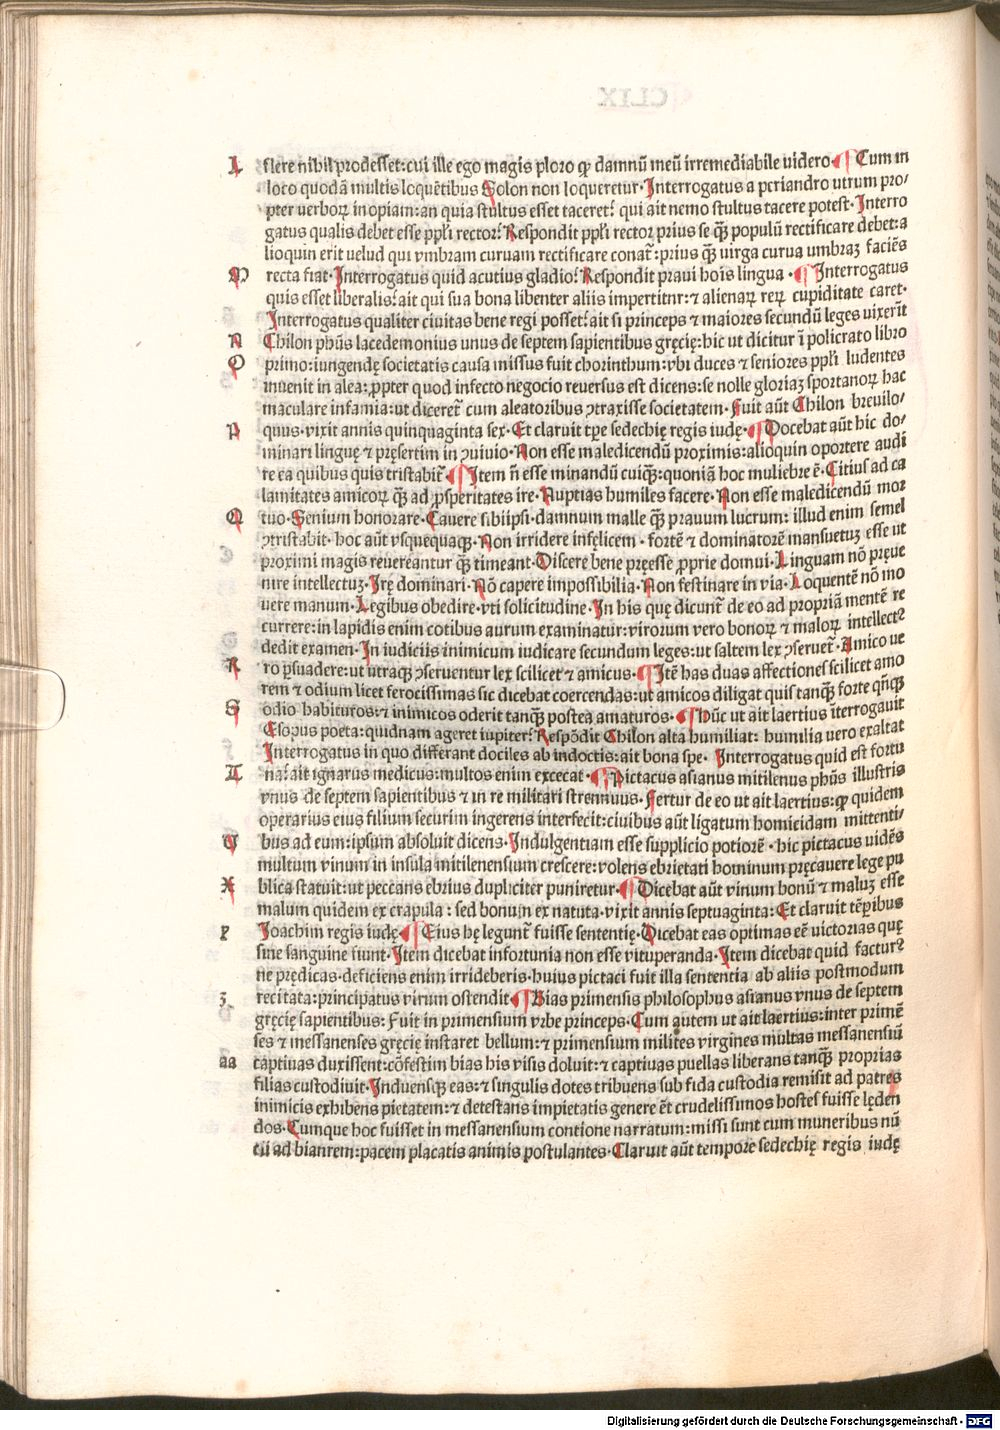 L flere nihil prodesset:cui ille ego magis ploro ꝙ damnũ meũ irremediabile videro·¶ Cum in
loco quodã multis loquẽtibus Solon non loqueretur·Interrogatus a periandro utrum pro/
pter verboꝝ inopiam:an quia stultus esset taceret? qui ait nemo stultus tacere potest·Interro
gatus qualis debet esse ppľi rector? Respondit ppľi rector prius se q̃ꝫ populũ rectificare debet:a
lioquin erit velud qui vmbram curuam rectificare conat̃:prius q̃ꝫ virga curua umbraꝫ faciẽs
M recta fiat·Interrogatus quid acutius gladio? Respondit praui hoĩs lingua·¶ Interrogatus
quis esset liberalis?ait qui sua bona libenter aliis impertitnr:⁊ alienaꝝ reꝝ cupiditate caret·
Interrogatus qualiter civitas bene regi posset?ait si princeps ⁊ maiores secundũ leges vixerĩt
N Chilon pħus lacedemonius unus de septem sapientibus gręcię:hic ut dicitur ĩ policrato libro
O primo:iungendę societatis causa missus fuit chorinthum:vbi duces ⁊ seniores ppľi ludentes
invenit in alea:ꝓpter quod infecto negocio reversus est dicens:se nolle gloriaꝫ sportanoꝝ hac
maculare infamia:ut diceret̃ cum aleatoribus ꝯtraxisse societatem·Fuit aũt Chilon brevilo/
P quus·vixit annis quinquaginta sex·Et claruit tꝑe sedechię regis iudę·¶ Docebat aũt hic do/
minari linguę ⁊ pręsertim in ꝯuiuio·Non esse maledicendũ proximis:alioquin oportere audi
re ea quibus quis tristabit̃·¶ Item ñ esse minandũ cuiq̃ꝫ:quoniã hoc muliebre ẽ·Citius ad ca
lamitates amicoꝝ q̃ꝫ ad ꝓsperitates ire·Nuptias humiles facere·Non esse maledicendũ mor
Q tuo·Senium honorare·Cauere sibiipsi·damnum malle q̃ꝫ prauum lucrum: illud enim semel
ꝯtristabit·hoc aũt vsquequaqꝫ·Non irridere infęlicem·fortẽ ⁊ dominatorẽ mansuetuꝫ esse ut
proximi magis revereantur q̃ꝫ timeant·Discere bene pręesse ꝓprie domui·Linguam nõ pręue
nire intellectuꝫ·Irę dominari·Nõ capere impossibilia·Non festinare in via·Loquentẽ nõ mo
vere manum·Legibus obedire·vti solicitudine·In his quę dicunt̃ de eo ad propriã mentẽ re
currere:in lapidis enim cotibus aurum examinatur:virorum vero bonoꝝ ⁊ maloꝝ intellectꝰ
dedit examen·In iudiciis inimicum iudicare secundum leges:ut saltem lex ꝯseruet̃·Amico ve
R ro ꝑsuadere:ut utraqꝫ ꝯseruentur lex scilicet ⁊ amicus·¶ Itẽ has duas affectiones scilicet amo
rem ⁊ odium licet ferocissimas sic dicebat coercendas:ut amicos diligat quis tanq̃ꝫ forte qñqꝫ
S odio habituros:⁊ inimicos oderit tanq̃ꝫ postea amaturos·¶ Hũc ut ait laertius ĩterrogauit
Esopus poeta:quidnam ageret iupiter? Respõdit Chilon alta humiliat: humilia vero exaltat
Interrogatus in quo differant dociles ab indoctis:ait bona spe· Interrogatus quid est fortu
T na?ait ignarus medicus:multos enim excecat·¶ Pictacus asianus mitilenus pħus illustris
vnus de septem sapientibus ⁊ in re militari strennuus·Fertur de eo ut ait laertius:ꝙ quidem
operarius eius filium securim ingerens interfecit:civibus aũt ligatum homicidam mittenti/
V bus ad eum:ipsum absoluit dicens·Indulgentiam esse supplicio potiorẽ·hic pictacus vidẽs
multum vinum in insula mitilenensium crescere:volens ebrietati hominum pręcavere lege pu
X blica statuit:ut peccans ebrius dupliciter puniretur·¶ Dicebat aũt vinum bonũ ⁊ maluꝫ esse
malum quidem ex crapula: sed bonum ex natuta·vixit annis septuaginta: Et claruit tẽpꝑibus
Y Joachim regis iudę·¶ Eius hę legunt̃ fuisse sententię·Dicebat eas optimas eẽ victorias quę
sine sanguine fiunt·Item dicebat infortunia non esse vituperanda·Item dicebat quid facturꝰ
ne prędicas·deficiens enim irrideberis·huius pictaci fuit illa sententia ab aliis postmodum
Z recitata:principatus virum ostendit·¶ Bias primensis philosophus asianus vnus de septem
gręcię sapientibus: Fuit in primensium vrbe princeps·Cum autem ut ait laertius:inter primẽ
ses ⁊ messanenses gręcię instaret bellum:⁊ primensium milites virgines multas messanensiũ
aa captiuas duxissent:cõfestim bias his visis doluit:⁊ captiuas puellas liberans tanq̃ꝫ proprias
filias custodiuit·Induensqꝫ eas:⁊ singulis dotes tribuens sub fida custodia remisit ad patres
inimicis exhibens pietatem:⁊ detestans impietatis genere ẽt crudelissimos hostes fuisse lęden
dos·Cumque hoc fuisset in messanensium contione narratum:missi sunt cum muneribus nũ
tii ad bianrem:pacem placatis animis postulantes·Claruit aũt tempore sedechię regis iudę
Digitalisierung gefördert durch die Deutsche Forschungsgemeinschaft · DFG